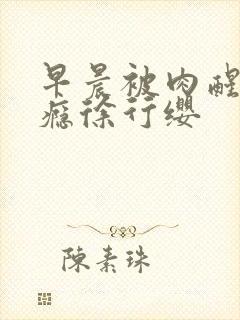 早晨被肉醒
瘾徐行缨
陈素珠